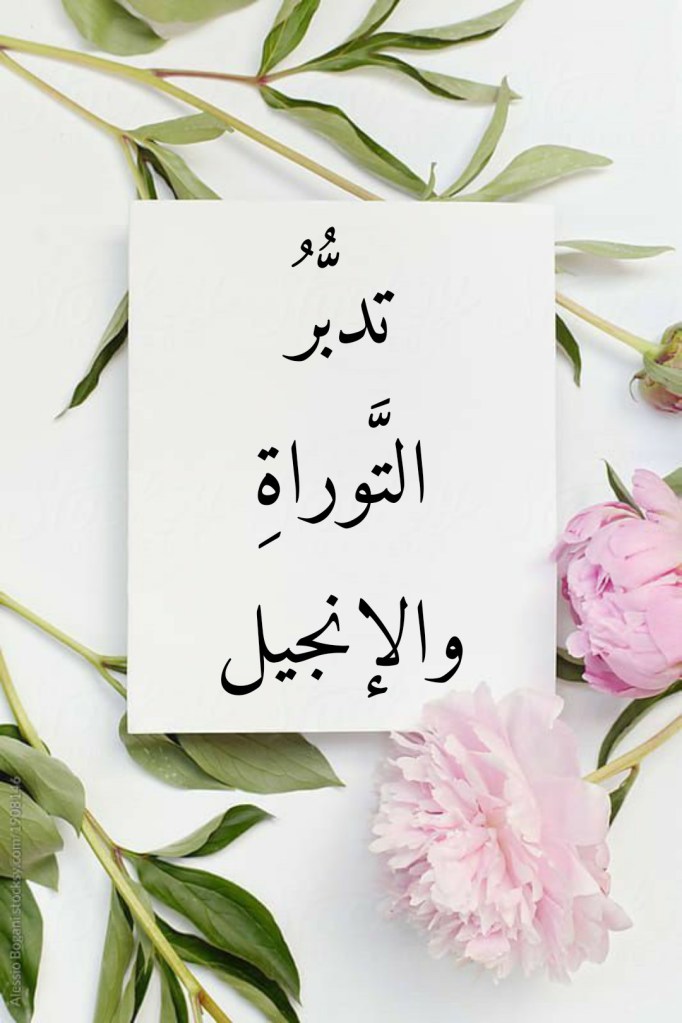 تدبُّرُ
التَّوراةِ
والإنجيل
Alessio Bogani stocksy.com/1908146